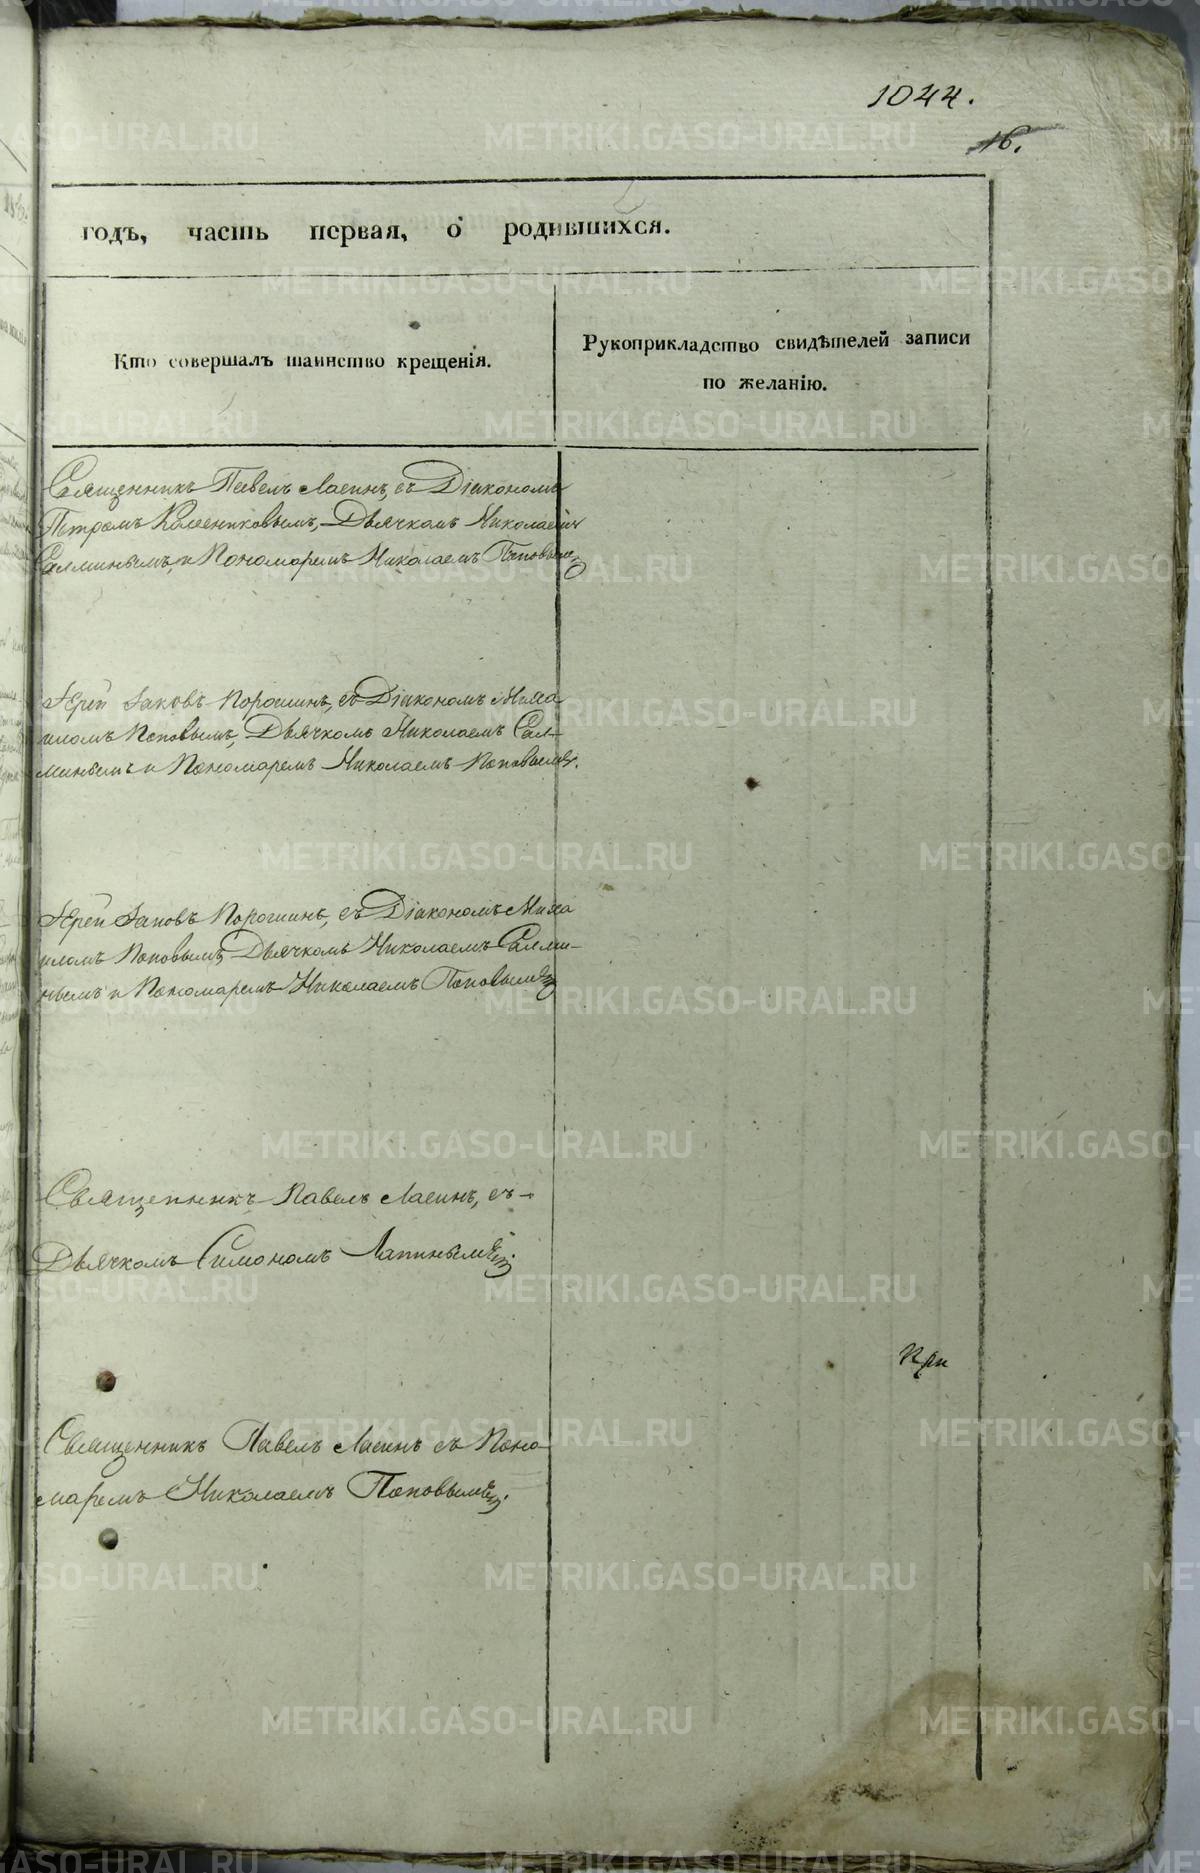 1044.
16.
годъ, часть первая, о родившихся.
Кто совершалъ таинство крещенія.
Рукоприкладство свидѣтелей записи
по желанію.
Священникъ Павелъ Ласинъ, съ Діакономъ
Петромъ Дьячкомъ Николаемъ
и Пономаремъ Николаемъ Поповымъ
Іерей Іаковъ Порошинъ, съ Діакономъ Миха
иломъ Поповымъ, Дьячкомъ Николаемъ Сал-
минымъ и Пономаремъ Николаемъ Поповымъ.
Іерей Іаковъ Порошинъ, съ Діакономъ Миха
иломъ Поповымъ, Дьячкомъ Николаемъ Салми-
нымъ и Пономаремъ Николаемъ Поповымъ
Священникъ Павелъ Ласинъ, съ
Дьячкомъ Симономъ Лапинымъ.
При
Священникъ Павелъ Ласинъ съ Поно
маремъ Николаемъ Поповымъ.
METRIKI.GASO-URAL.RU